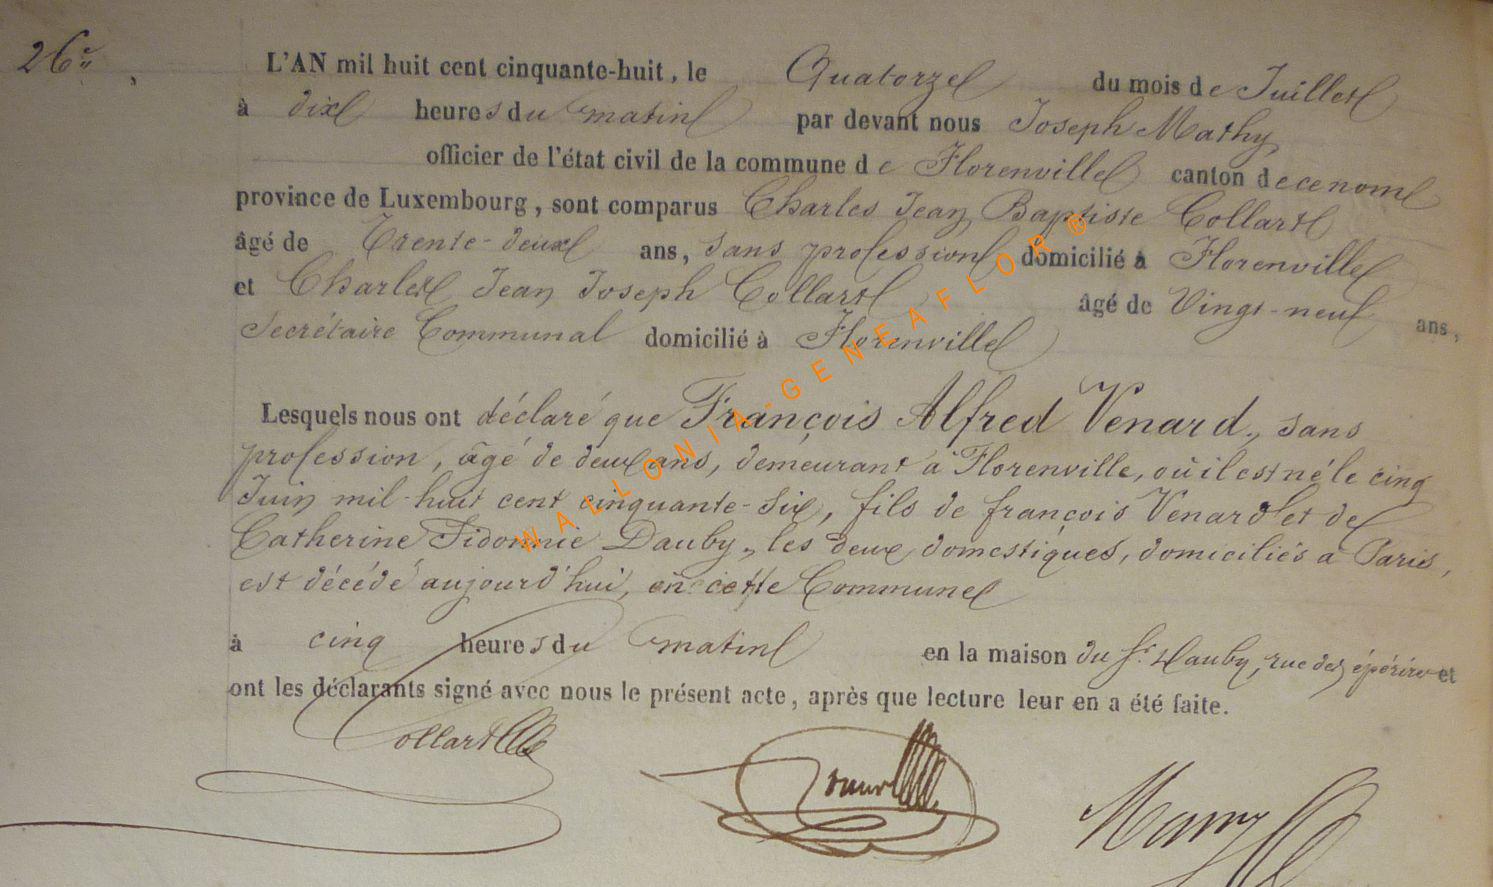 26e
L'AN mil huit cent cinquante-huit, le Quatorze du mois de Juillet
à dix heures du matin par devant nous Joseph Mathy
officier de l'état civil de la commune de Florenville canton de ce nom
province de Luxembourg, sont comparus Charles Jean Baptiste Collart
âgé de Trente-deux ans, sans profession domicilié à Florenville
et Charles Jean Joseph Collart âgé de Vingt-neuf ans,
Secrétaire Communal domicilié à Florenville
Lesquels nous ont déclaré que François Alfred Venard, sans
profession, âgé de deux ans, demeurant à Florenville, où il est né le cinq
Juin mil-huit cent cinquante-six, fils de françois Venard et de
Catherine Sidonnie Dauby, les deux domestiques, domiciliés à Paris,
est décédé aujourd'hui, en cette Commune
à cinq heures du matin en la maison du Sr. Dauby, rue des et
ont les déclarants signé avec nous le présent acte, après que lecture leur en a été faite.
Collart
WALLONIA-GENEAFLOR®